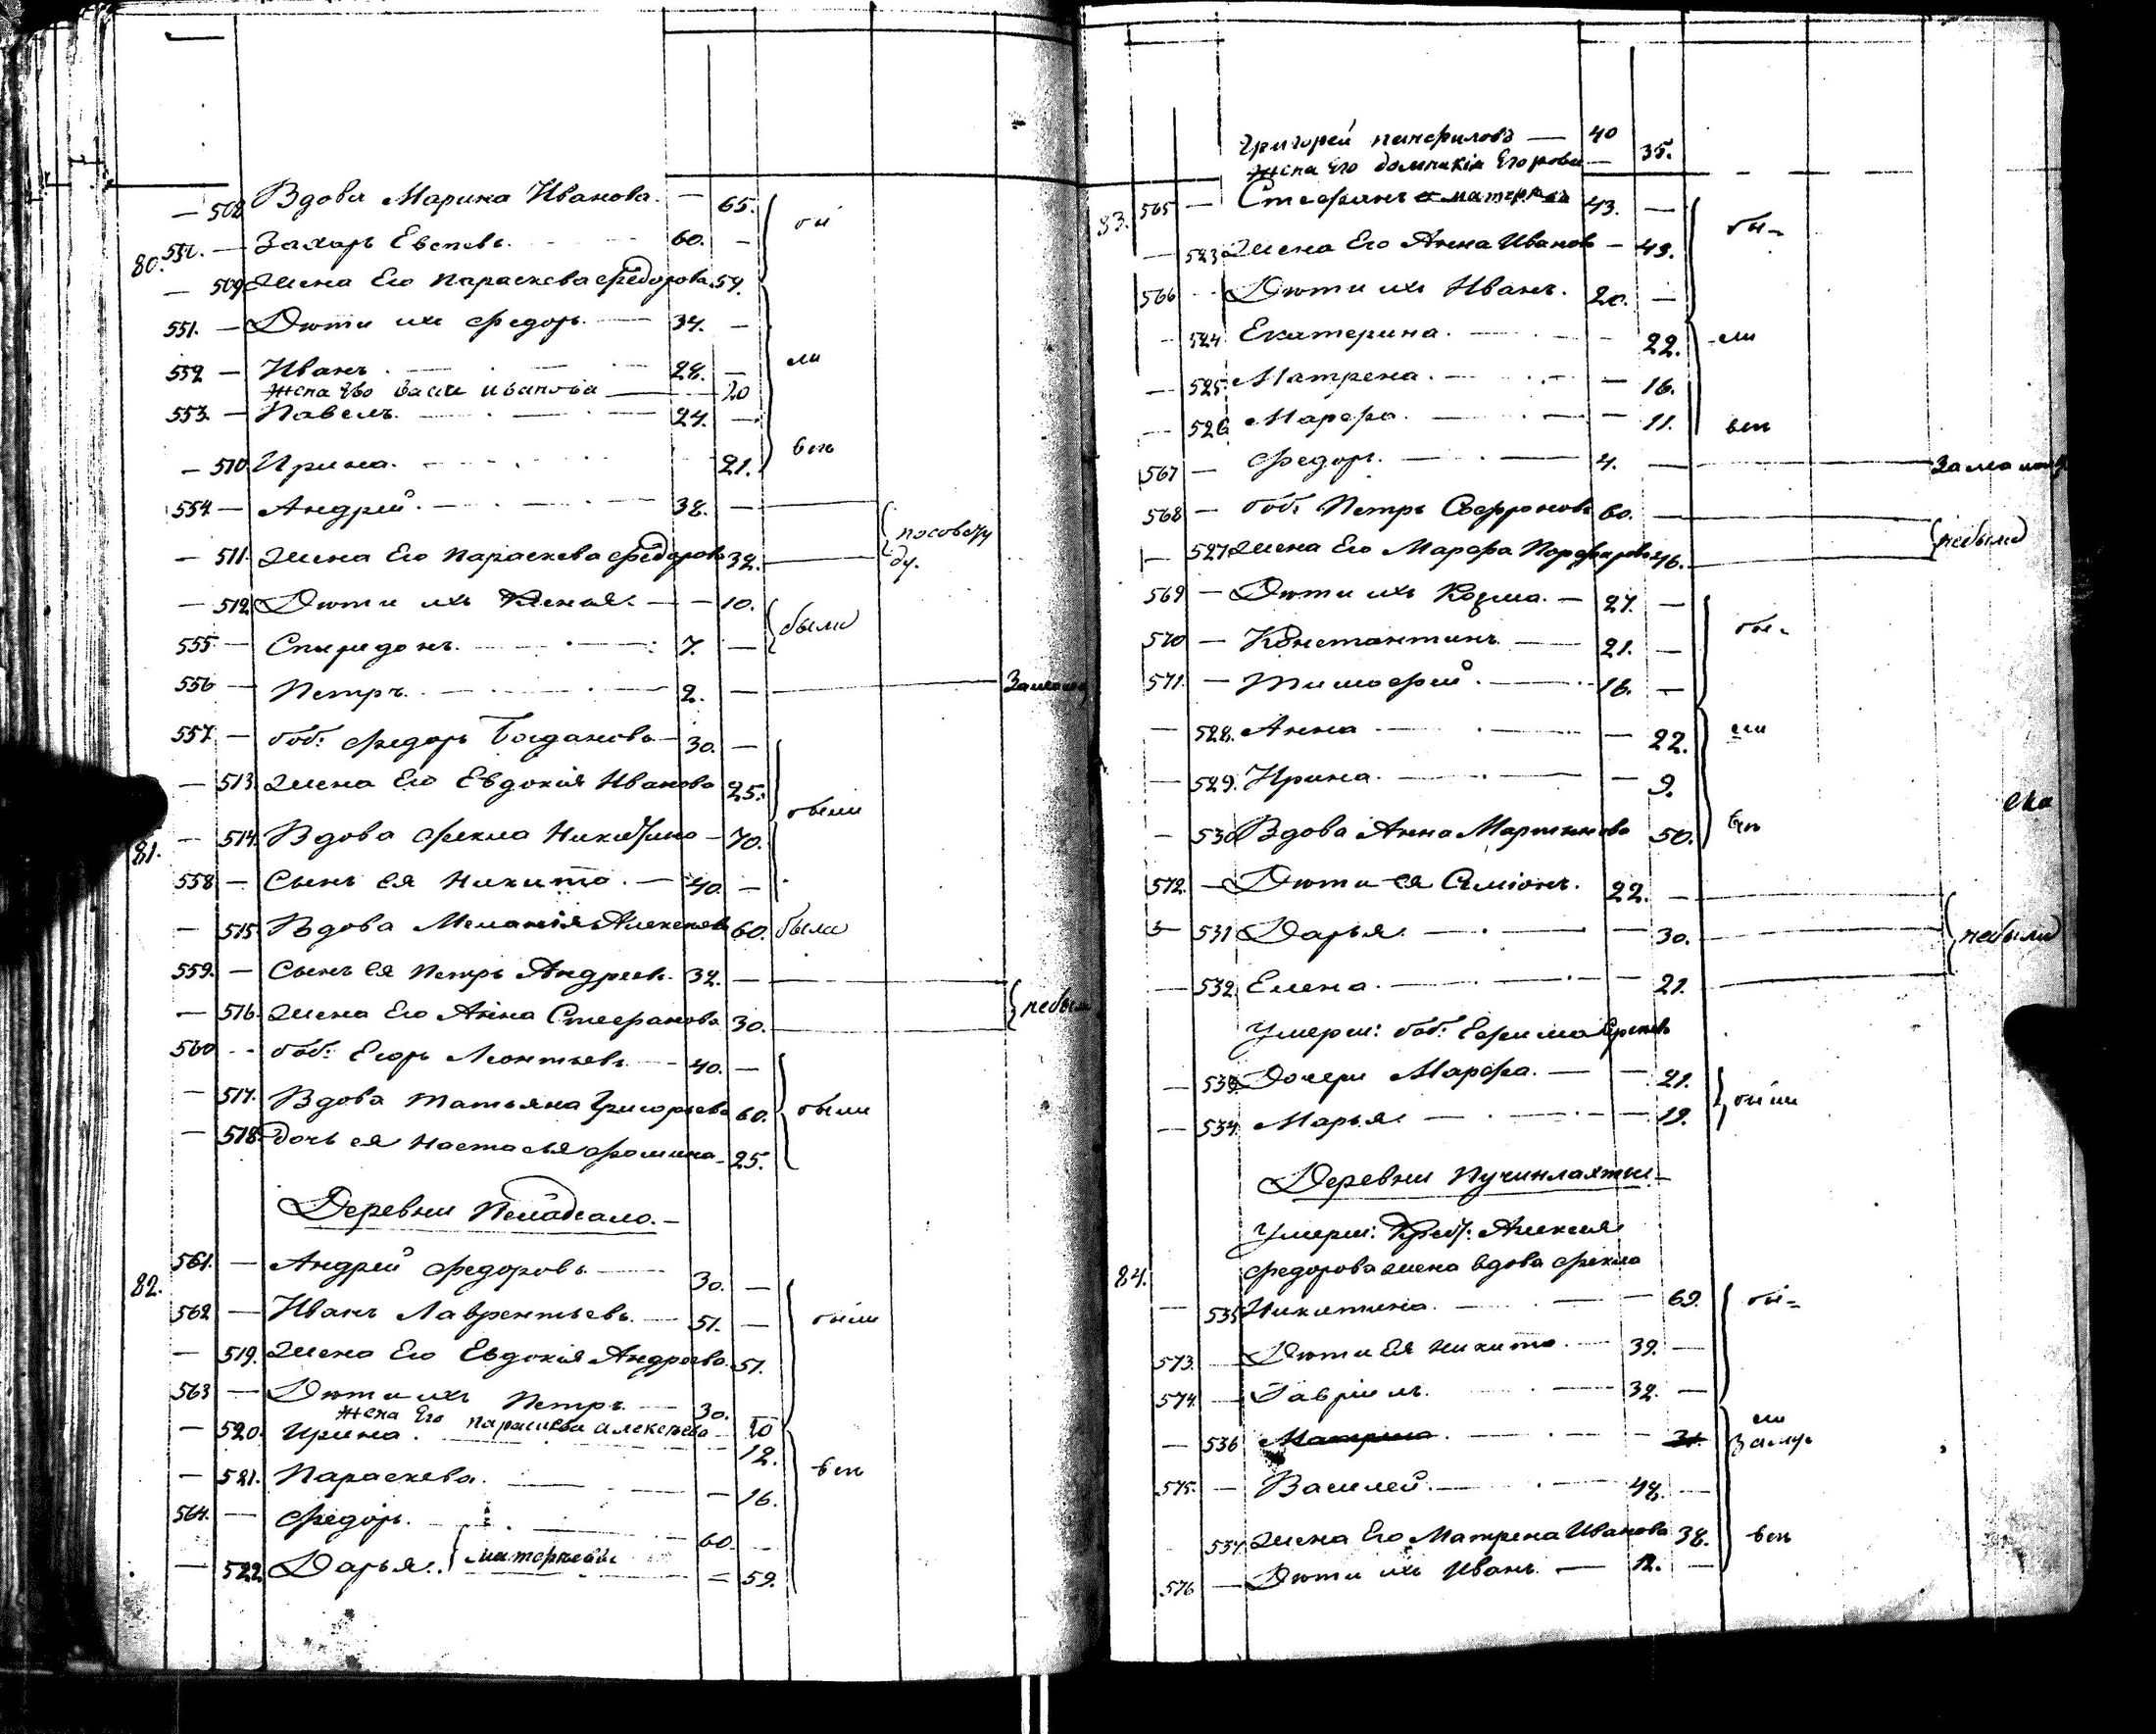 508 Вдова Марина Иванова. — 65.
80. 550. — Захаръ Евсеевъ. 60. — бы
— 509 Жена Его Параскева Федорова 59.
551. — Дѣти ихъ Федоръ. — 34. —
552 — Иванъ. 28. — ли
Жена Его Иванова — 20
553. — Павелъ. 24. —
— 510 Ирина. 21. всѣ
554 — Андрей. 38. —
— 511. Жена Его Параскева Федорова 32.
— 512 Дѣти ихъ — 10.
555 — Спиридонъ. 7. — были
556 — Петръ. 2. —
557. — боб: Федоръ Богдановъ 30. —
— 513. Жена Его Евдокія Иванова 25. были
81. — 514. Вдова Фекла Никитина — 70.
558 — Сынъ ея Никита. — 40. —
— 515 Вдова Меланія Алексеева 60. были
559. — Сынъ ея Петръ Андреевъ. 32. —
— 516. Жена Его Анна Стефанова 30. небыли
560 боб: Егоръ Леонтьевъ. 40. —
— 517. Вдова Татьяна Григорьева 60. были
— 518 дочь ея Настасья Фомина 25.
Деревни
82. 561. — Андрей Федоровъ 30. —
562 — Иванъ Лаврентьевъ. 51. — были
— 519. Жена Его Евдокія Андреева 51.
563 — Дѣти ихъ Петръ. 30.
Жена Его Параскева Алексеева
— 520. Ирина. 12.
— 521. Параскева. — 16. всѣ
564. — Федоръ. 60.
— 522. Дарья. 59.
Григорей Панфиловъ — 40
Жена Его Домникія Егорова — 35.
83. 565 — Стефанъ 43. —
— 523 Жена Его Анна Иванов — 43. бы-
566 Дѣти ихъ Иванъ. 20. —
— 524 Екатерина. — 22. -ли
— 525. Матрена. — 16.
— 526 Марфа. — 11. всѣ
567 — Федоръ. 4. —
568 — боб: Петръ Софроновъ 60. —
— 527 Жена Его Марфа 46. небыли
569 — Дѣти ихъ Козма. — 27. —
570 — Константинъ — 21. — бы-
571. — Тимофей. 16. —
— 528. Анна — 22. ли
— 529. Ирина. — 9.
— 530 Вдова Анна Мартинова 50. всѣ
572. — Дѣти ея Симіонъ. 22. —
531 Дарья. — 30. небыли
— 532. Елена. — 21.
Умерш: боб: Ефима
— 533 Дочери Марфа. — 21.
— 534 Марья. — 19. были
Деревни
Умерш: Алексея
84. Федорова жена вдова Фекла
— 535 Никитина. — 69. бы-
573. Дѣти Ея Никита. 39. —
574. Гавріилъ. 32. —
— 536 Матрена. — 31. ли
575. — Василей. 48. —
537. Жена Его Матрена Иванова 38. всѣ
576 — Дѣти ихъ Иванъ. — 12. —